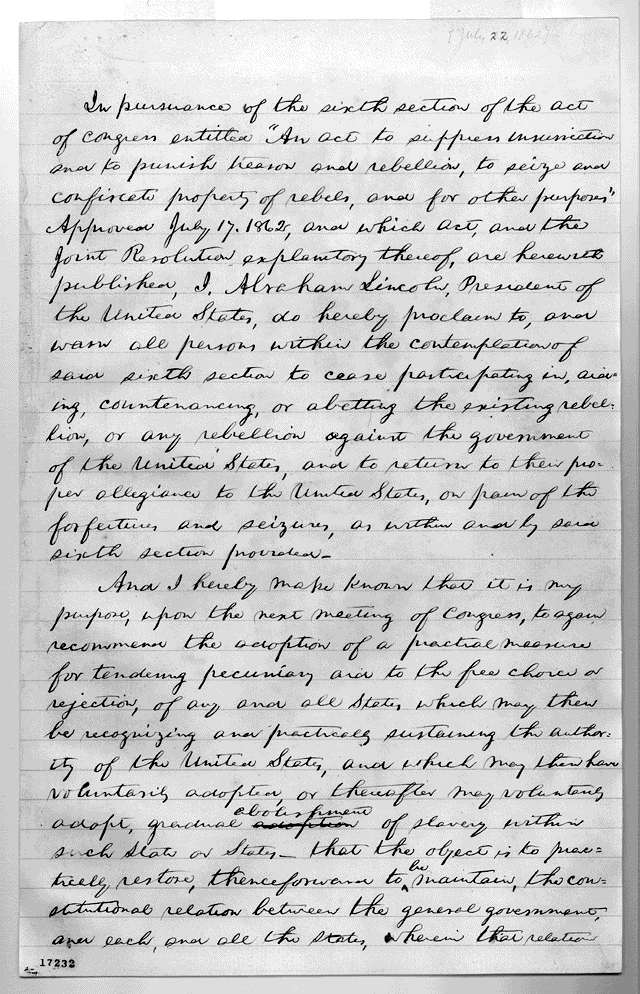 [July 22, 1862]
In pursuance of the sixth section of the act
of Congress entitled "An act to suppress insurrection
and to punish treason and rebellion, to seize and
confiscate property of rebels, and for other purposes"
Approved July 17. 1862, and which act, and the
Joint Resolution explanatory thereof, are herewith
published, I, Abraham Lincoln, President of
the United States, do hereby proclaim to, and
warn all persons within the contemplation of
said sixth section to cease participating in, aid-
ing, countenancing, or abetting the existing rebel-
lion, or any rebellion against the government
of the United States, and to return to their pro-
per allegiance to the United States, on pain of the
forfeitures and seizures, as within and by said
sixth section provided—
And I hereby make known that it is my
purpose, upon the next meeting of Congress, to again
recommend the adoption of a practical measure
for tendering pecuniary aid to the free choice or
rejection, of any and all States which may then
be recognizing and practically sustaining the author-
ity of the United States, and which may then have
voluntarily adopted, or thereafter may voluntarily
abolishment
adopt, gradual adoption of slavery within
such State or States— that the object is to prac-
tically restore, thenceforward to be maintain, the con-
stitutional relation between the general government,
and each, and all the states, wherein that relation
17232